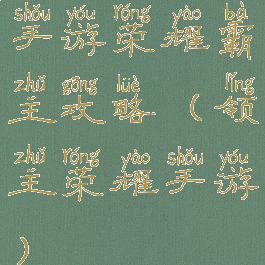 shǒu yóu róng yào bà
手游荣耀霸
zhǔ gōng lüè lǐng
主攻略（领
zhǔ róng yào shǒu yóu
主荣耀手游
）